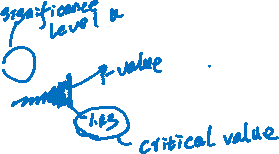 significance
level α
P-value
1.83
critical value